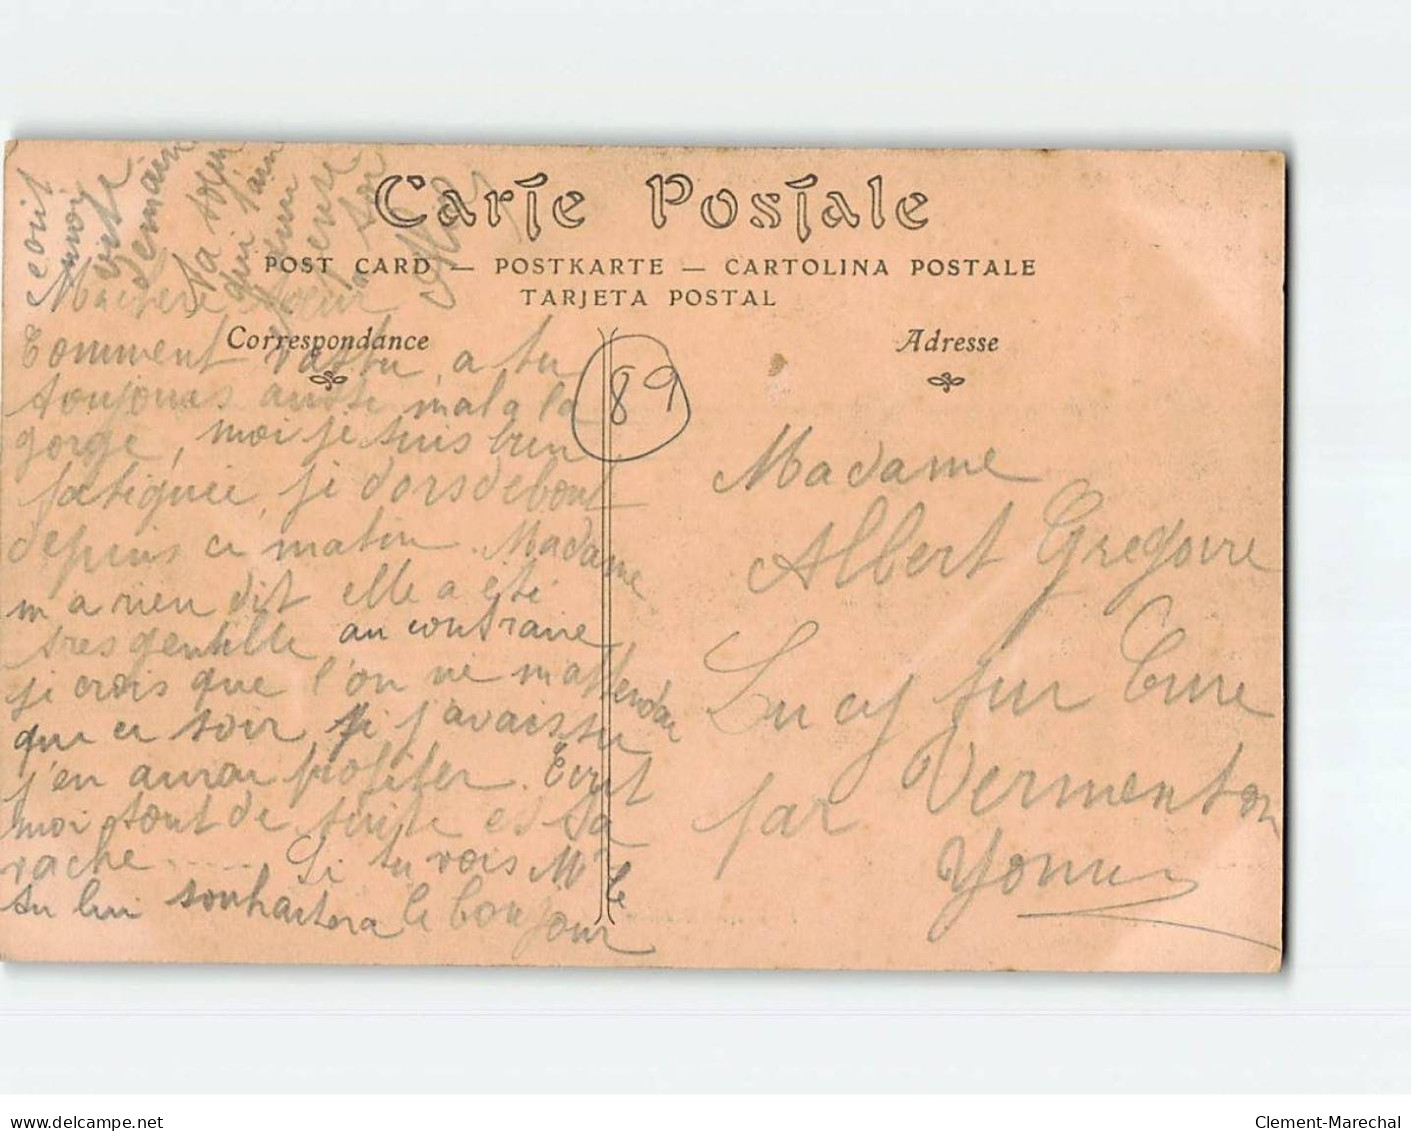 Carte Postale
POST CARD — POSTKARTE — CARTOLINA POSTALE
TARJETA POSTAL
Correspondance
Adresse
89
ecrit
moi
vite
demain
Ta soeur
qui t'aim
pense
a toi
Ma chere soeur
Comment vas tu, a tu
toujours aussi mal a la
gorge, moi je suis bien
fatiguée, je dors debout
depuis ce matin. Madame
m a rien dit elle a été
tres gentille au contraire
je crois que l'on ne m attendai
que ce soir si j'avais su
j'en aurai profiter. Ecrit
moi tout de suite et sa
vache ...... Si tu vois Mr
tu lui souhaitera le bonjour
Madame
Albert Gregoire
Lucy sur Cure
par Vermenton
Yonne
www.delcampe.net
Clement-Marechal